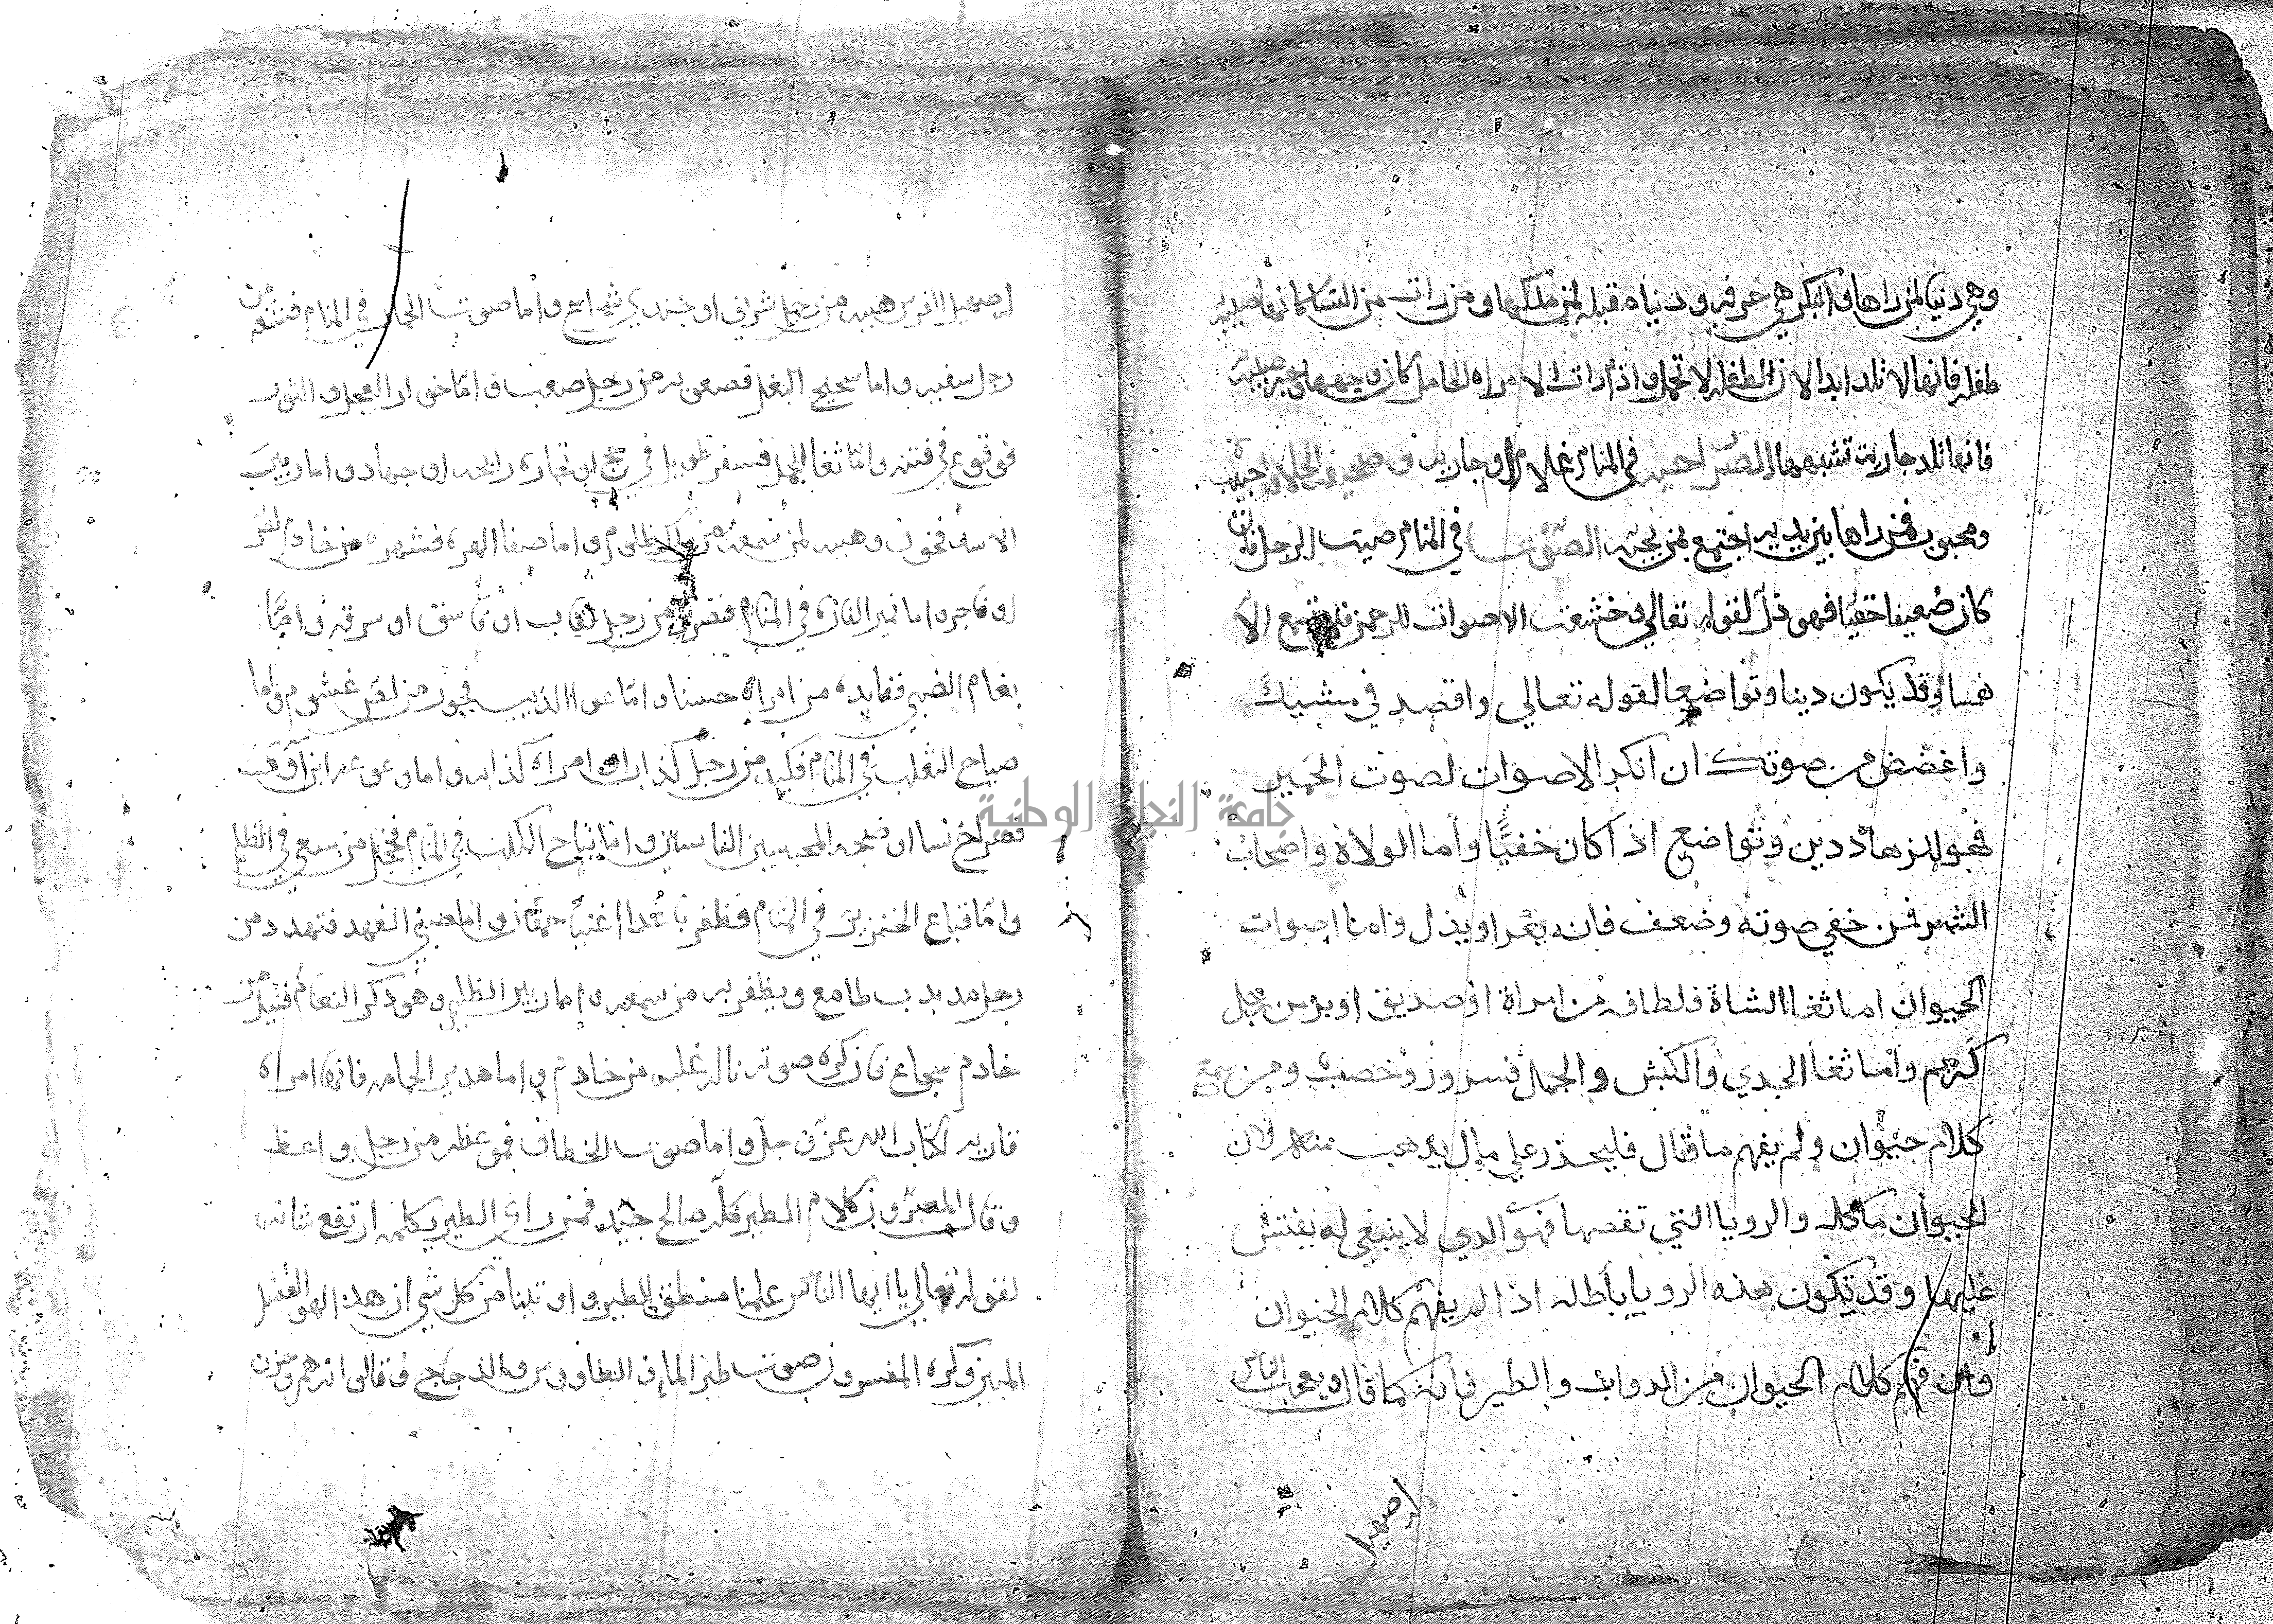 وهي دنيا لمن راها والبكر هي حرفه ودنياه مقبله لمن ملكها ومن رات من النسا كانها صبيه
طفله فانها لا تلد ابدا لان الطفله لا تحمل واذا رات الامراه الحامل كان وجهها وجه صبيه
فانها تلد جاريه تشبهها الصبر احسه في المنام غلاما او جاريه
ومحبوب فمن راها بين يديه اجتمع بمن يحبه الصوت في المنام صيت الرجل فان
كان ضعيفا خفيا فهو ذل لقوله تعالي وخشعت الاصوات للرحمن فلا تسمع الا
همسا وقد يكون دينا وتواضعا لقوله تعالي واقصد في مشيك
واغضض من صوتك ان انكر الاصوات لصوت الحمير
فهو لزهاد دين وتواضع اذا كان خفيا واما الولاه واصحاب
الشهر فمن خفي صوته وضعف فانه يعزل ويذل واما اصوات
الحيوان اما ثغا الشاة فلطافه من امراة او صديق او بر من رجل
كريم واما ثغا الجدي والكبش والحمل فسرور وخصب ومن سمع
كلام حيوان ولم يفهم ما قال فليحذر علي مال يذهب منه لان
الحيوان ماكله والرويا التي تقصها فهو الدي لا ينبغي له يفتش
عليها وقد تكون هذه الرويا باطله اذا لم يفهم كلام الحيوان
وان فهم كلام الحيوان من الدواب والطير فانه كما قال ويعجب الناس
اما صهيل
اما صهيل الفرس هيبه من رجل شريف او جندي شجاع واما صوت الحمار في المنام فشنعه من
رجل سفيه واما سحيج البغل فصعوبه من رجل صعب واما خوار العجل والثور
فوقوع في فتنه واما ثغا الجمل فسفر طويل في حج او تجاره رابحه او جهاد واما زيير
الاسد فخوف وهيبه لمن سمعه من ملك ظلوم واما صغا الهره فشهره من خادم لص
او فاجر واما نمير الفاره في المنام فضرر من رجل نقاب او فاسق او سرقه واما
بغام الظبي ففايده من امراه حسنا واما عوا الذيب فجور من لص غشوم واما
صياح الثعلب في المنام فكيد من رجل كذاب او امراه كذابه واما وعوعه ابن اوي
فصراخ نسا او ضجه المحبسين الناسين واما نباح الكلب في المنام فخجل من سعي في الظلم
واما قباع الخنزير في المنام فظفر باعدا اغنيا حمقان واما ضغي الفهد فتهدد من
رجل مدبدب طامع ويظفر به من سمعه واما زيير الظليم وهو ذكر النعام فنيل من
خادم شجاع فان كره صوته ناله غلبه من خادم واما هدير الحمامه فانها امراه
قاريه لكتاب الله عز وجل واما صوت الخطاف فموعظه من رجل واعظ
وقال المعبرون كلام الطير كله صالح جيد فمن راي الطير يكلمه ارتفع شانه
لقوله تعالي يا ايها الناس علمنا منطق الطير واوتينا من كل شي ان هذا لهو الفضل
المبين وكره المفسرون صوت طير الما والطاووس والدجاج وقالوا انه هم وحزن
جامعة النجاح الوطنية